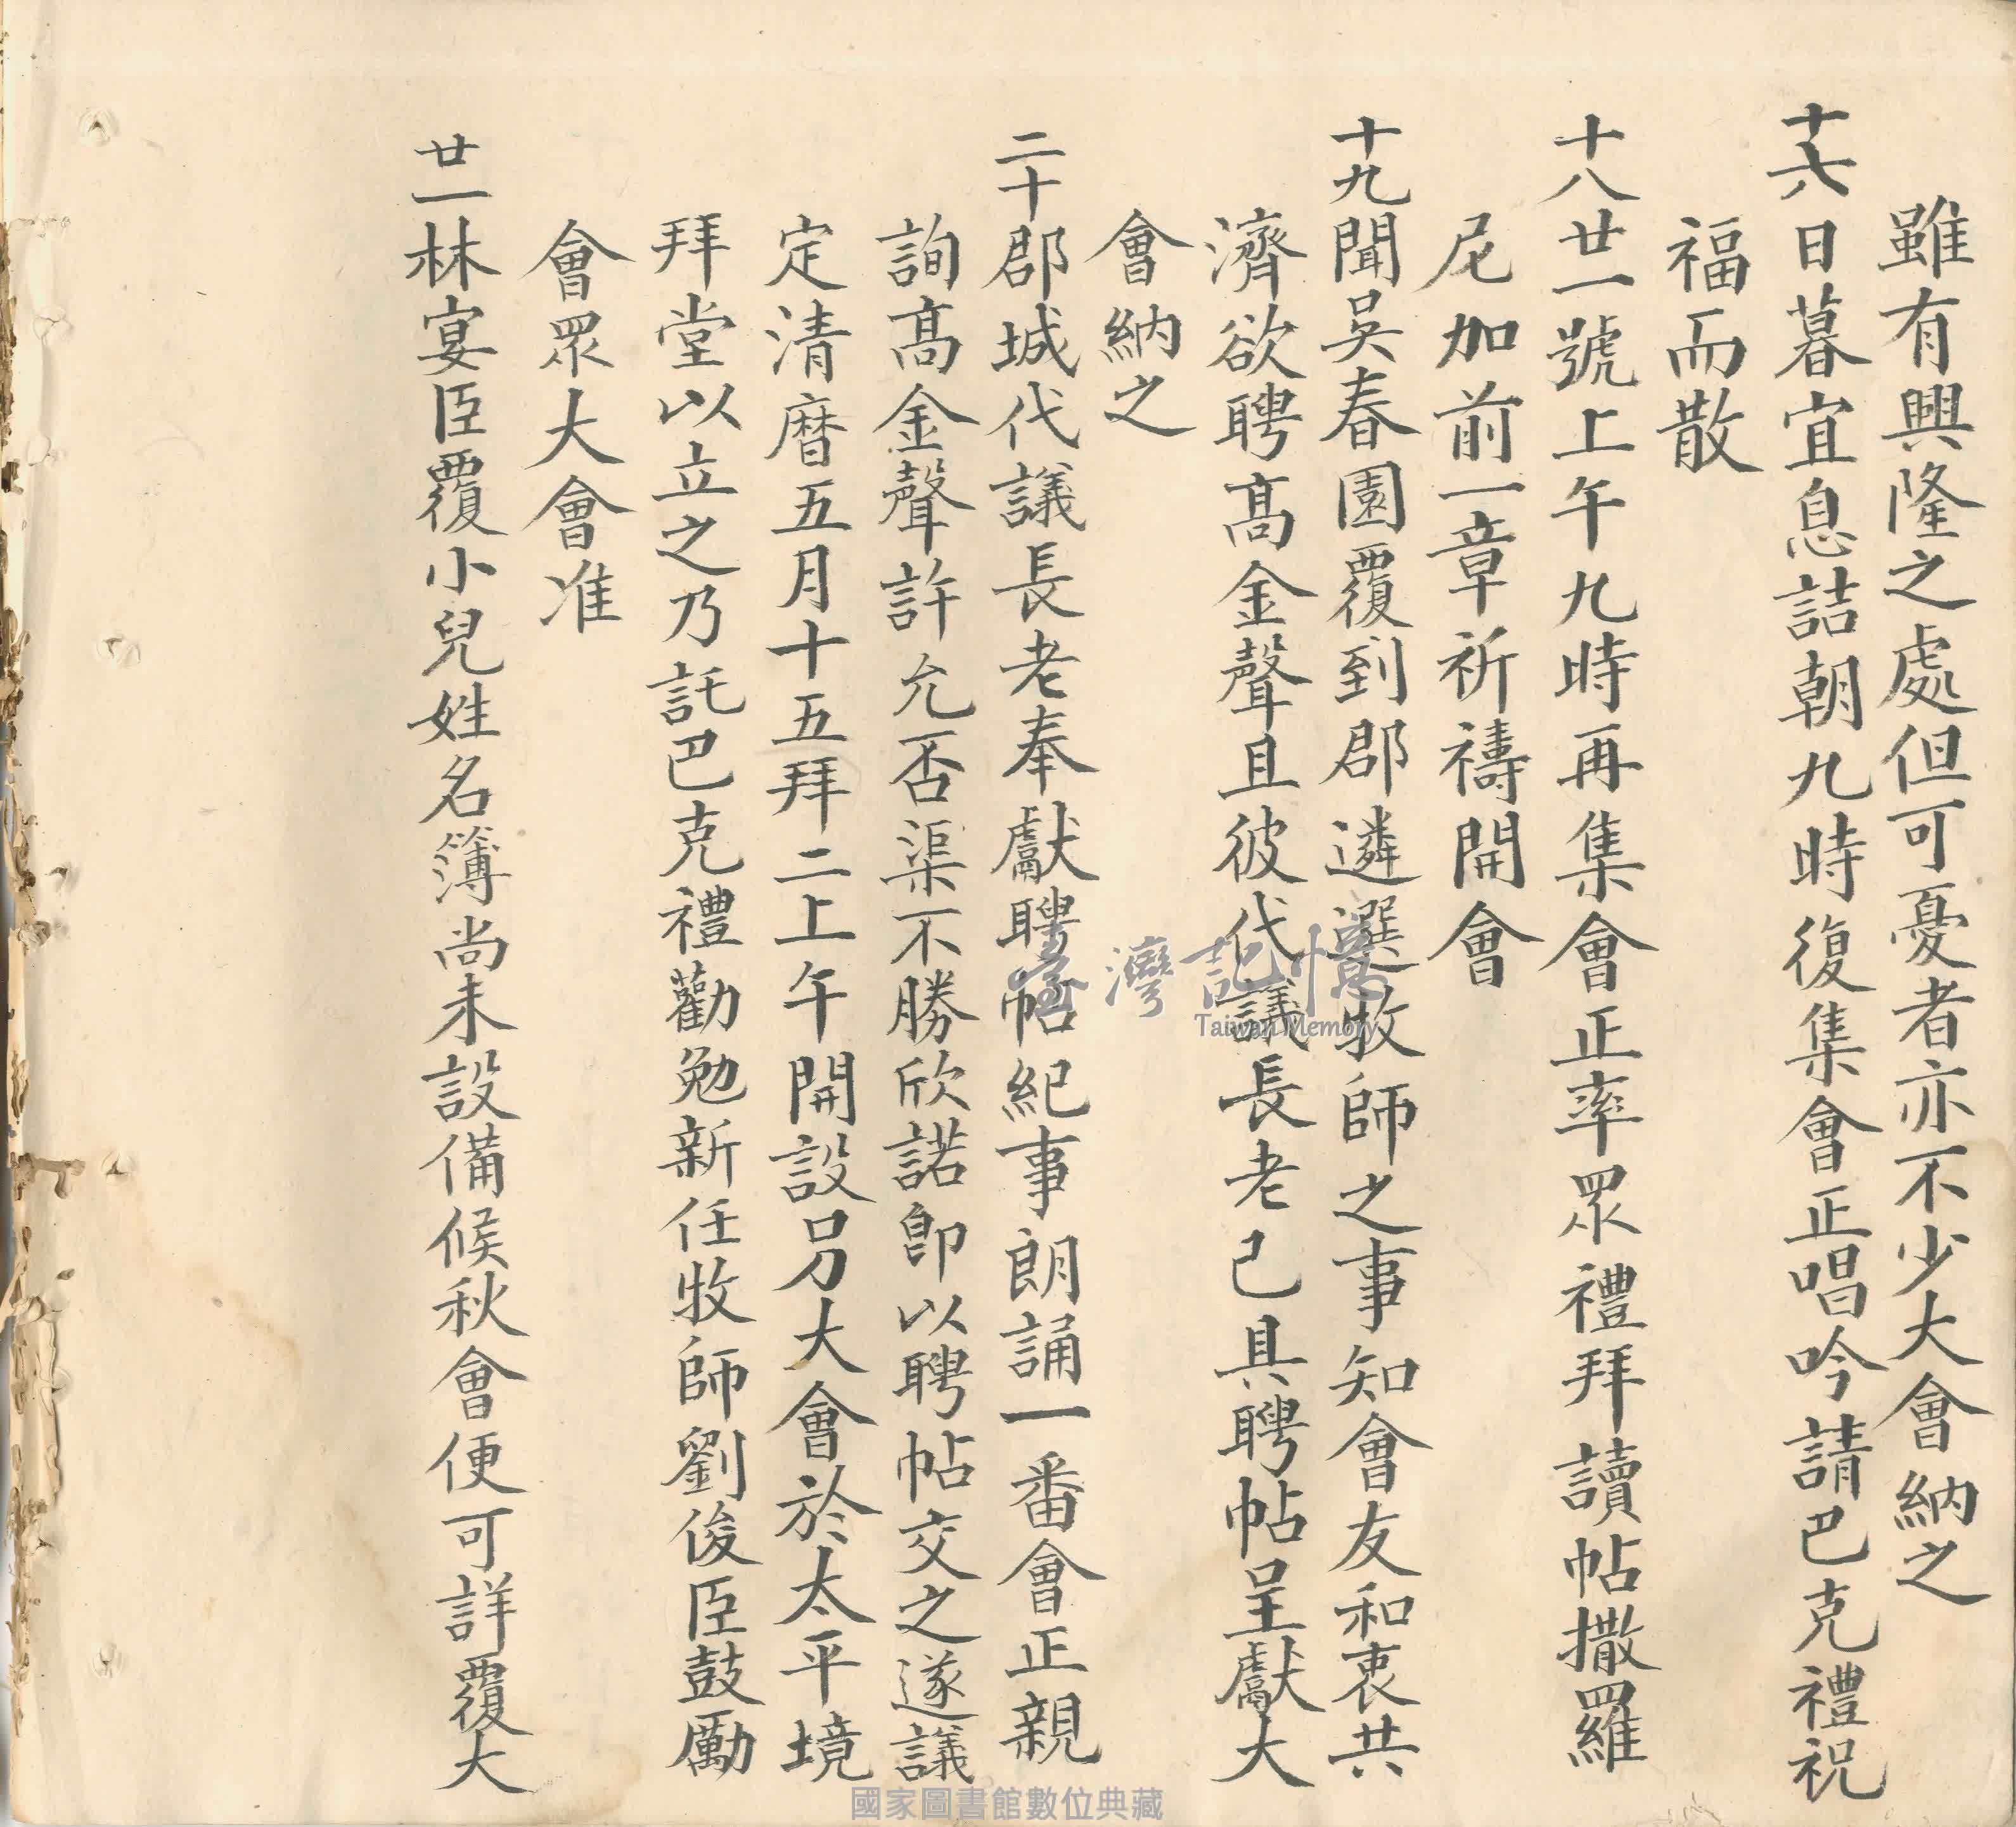 雖有興隆之處但可憂者亦不少大會納之
十六日暮宜息詰朝九時復集會正唱吟請巴克禮祝
福而散
十八廿一號上午九時再集會正率眾禮拜讀帖撒羅
尼加前一章祈禱開會
十九聞吳春園覆到郡遴選牧師之事知會友和衷共
濟欲聘高金聲且彼代議長老已具聘帖呈獻大
會納之
二十郡城代議長老奉獻聘帖紀事朗誦一番會正親
詢高金聲許允否渠不勝欣諾即以聘帖交之遂議
定清曆五月十五拜二上午開設另大會於太平境
拜堂以立之乃託巴克禮勸勉新任牧師劉俊臣鼓勵
會眾大會准
廿一林宴臣覆小兒姓名簿尚未設備候秋會便可詳覆大
臺灣記憶
Taiwan Memory
國家圖書館數位典藏